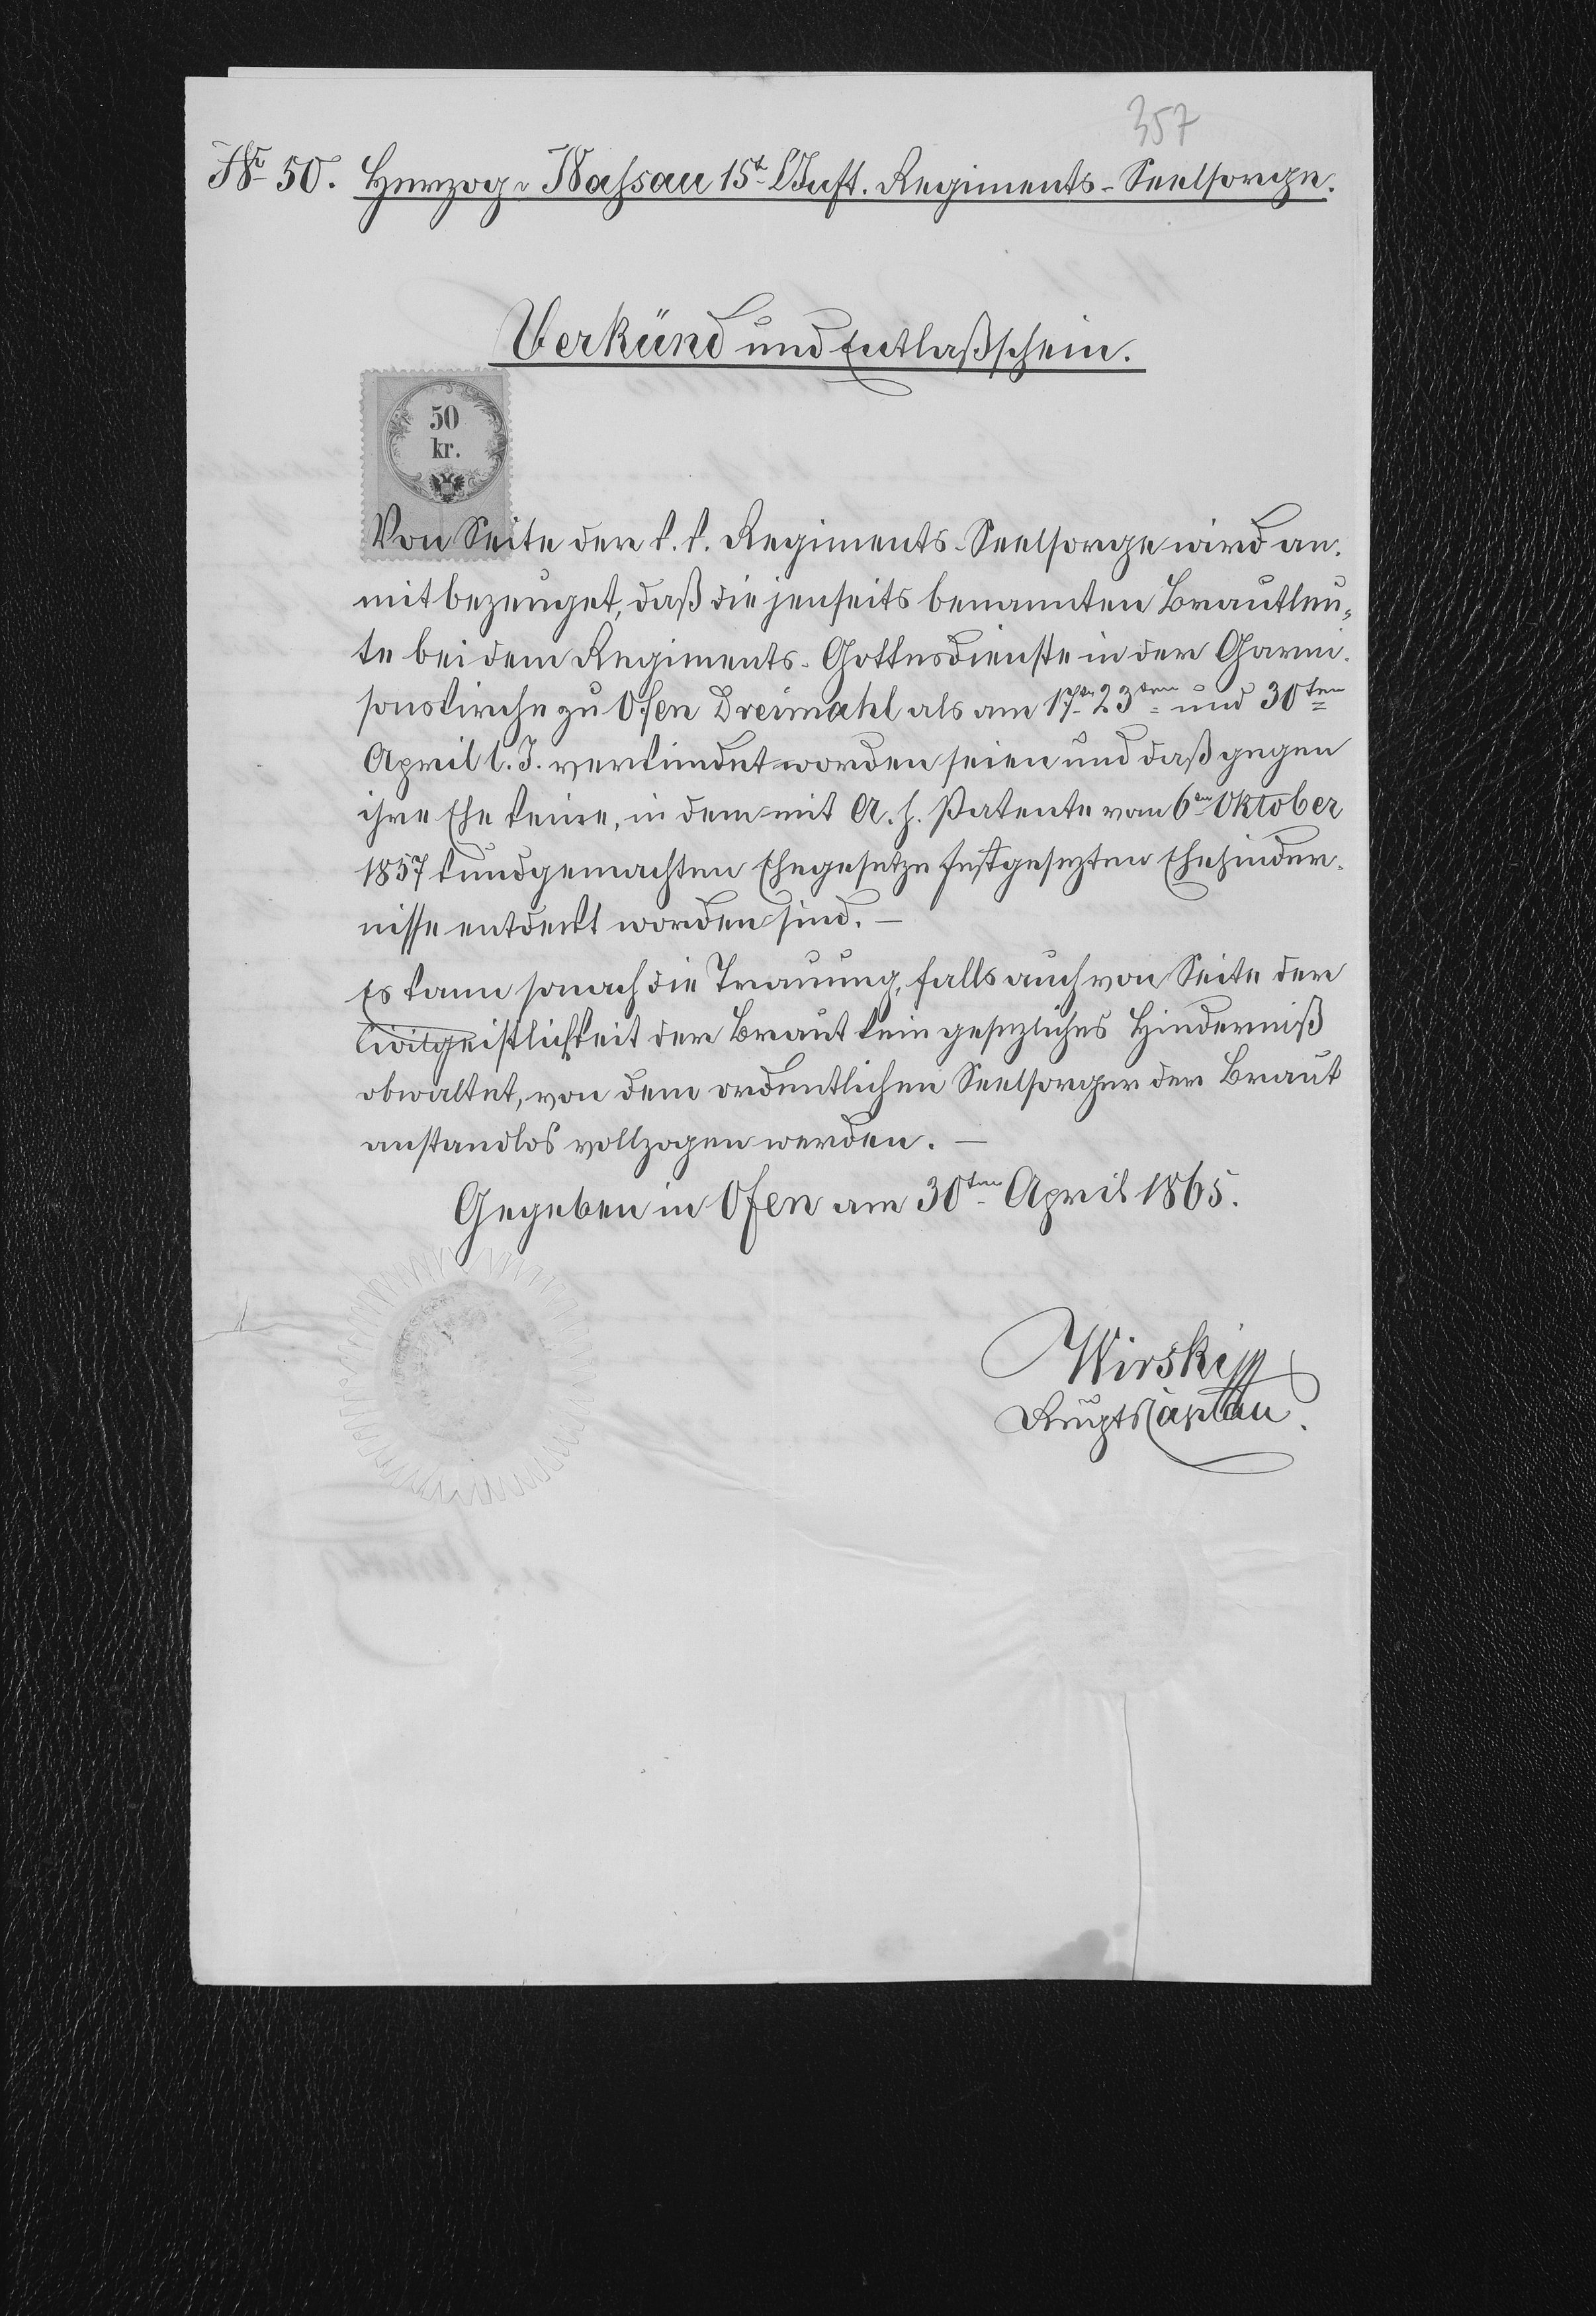 357
Nr. 50. Herzog v Nassau 15t Inft. Regiments-Seelsorge.
Verkünd und Entlaßschein.
50
kr.
Von Seite der k. k. Regiments-Seelsorge wird an-
mit bezeuget, daß die jenseits benannten Brautleu-
te bei dem Regiments-Gottesdienste in der Garni-
sonskirche zu Ofen Dreimahl als am 17ten 23ten und 30ten
April l. J. verkündet worden seien und daß gegen
ihre Ehe keine, in dem mit A. h. Patente vom 6ten Oktober
1857 kundgemachten Ehegesetze festgesezten Ehehinder-
nisse entdeckt worden sind. —
Es kann sonach die Trauung, falls auch von Seite der
Civilgeistlichkeit der Braut kein gesezliches Hinderniß
obwaltet, von dem ordentlichen Seelsorger der Braut
anstandlos vollzogen werden. —
Gegeben in Ofen am 30ten April 1865.
Wirski
RegtsCaplan.